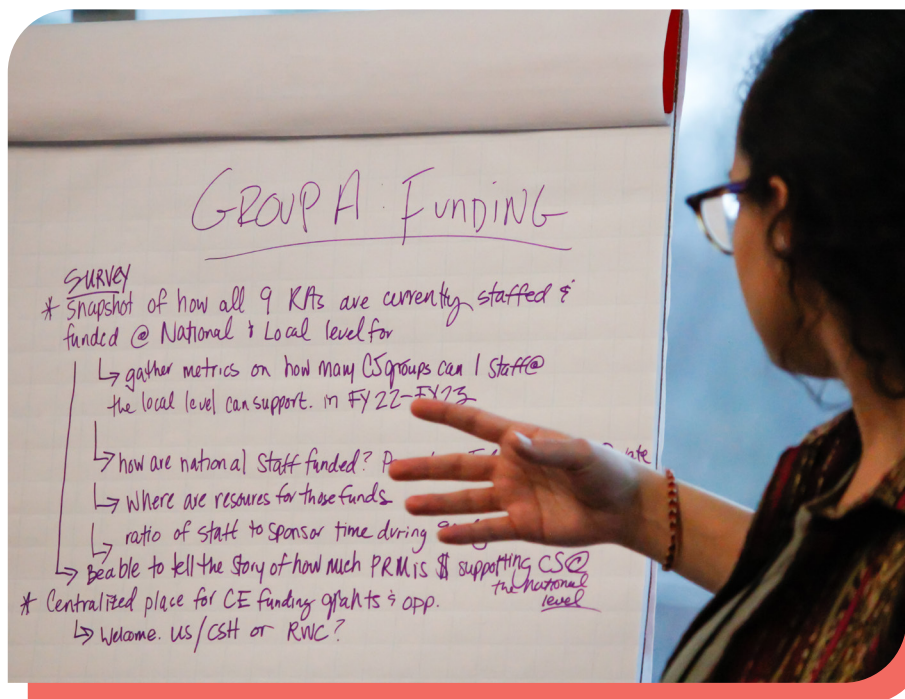 GROUP A: FUNDING
SURVEY
* Snapshot of how all 9 RAs are currently staffed &
funded @ National & Local level for
↳ gather metrics on how many CS groups can 1 staff @
the local level can support. in FY22-FY23
↳ how are national staff funded?
↳ Where are resoures for those funds
↳ ratio of staff to sponsor time during
↳ Beable to tell the story of how much PRM is $ supporting CS @
the national
level
* Centralized place for CE funding grants & opp.
↳ Welcome.US/CSH or RWC?